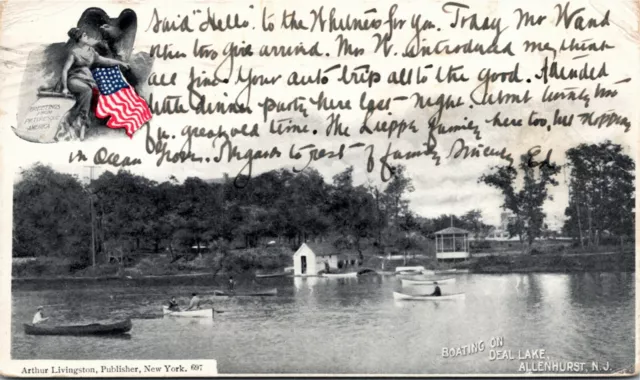 Said "Hello" to the Whitness for you. Today Mr Wand
other two girls arrived. Mrs W. introduced me, think
all fine. Your auto trip all to the good. Attended
little dinner party here last night. About twenty two
great old time. The Lieppe family here too, but stopping
in Ocean Grove. Regards to rest of family Sincerely Ed.
GREETINGS
FROM
PICTURESQUE
AMERICA
BOATING ON
DEAL LAKE,
ALLENHURST, N.J.
Arthur Livingston, Publisher, New York. 697